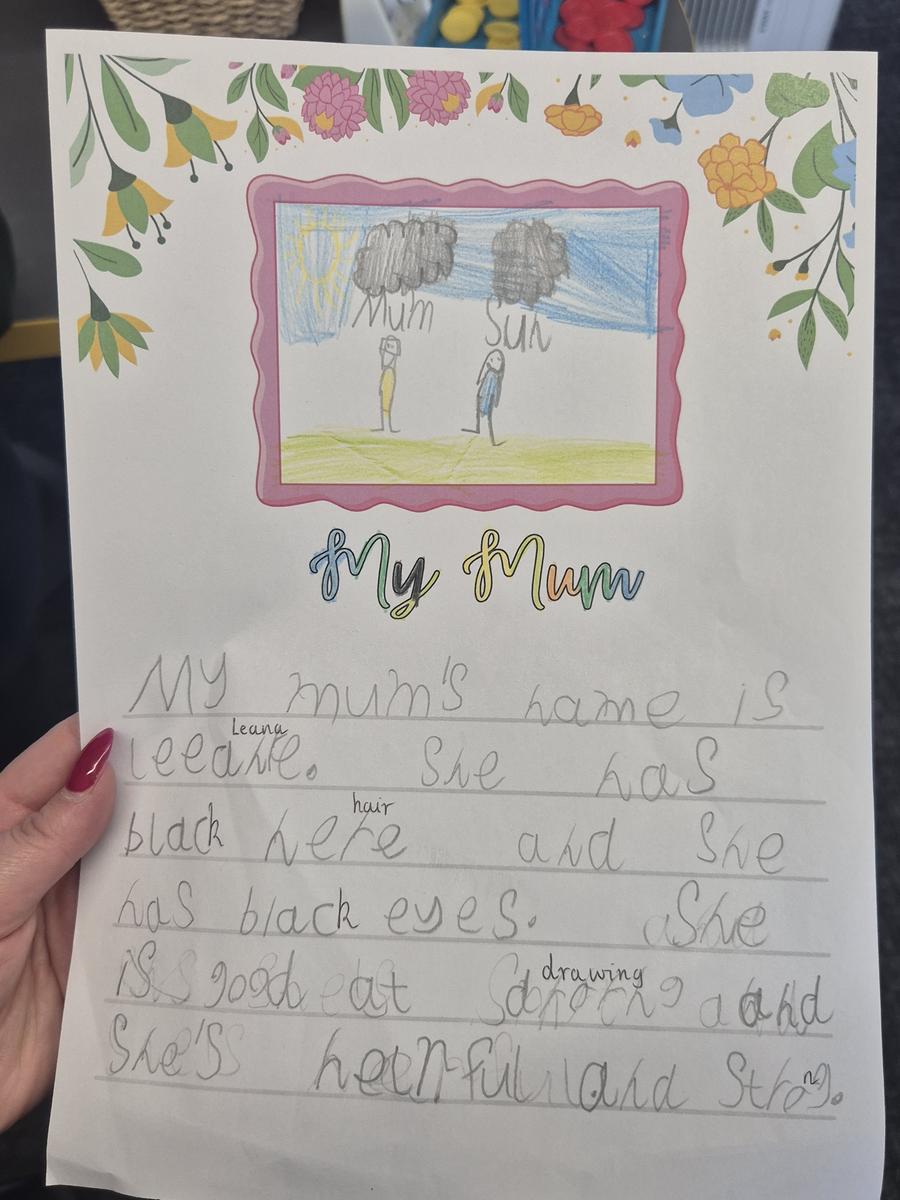 Mum Sun
My Mum
My mum's name is
Leana
leeane. She has
hair
black here and she
has black eyes. She
drawing
is good at and
She's and Strong.